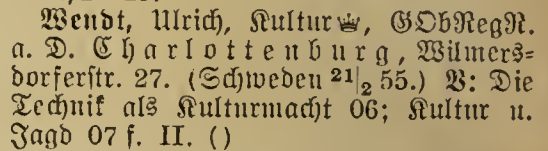 Wendt, Ulrich, Kultur♕, GObRegR.
a. D. Charlottenburg, Wilmers-
dorferstr. 27. (Schweden 21|2 55.) V: Die
Technik als Kulturmacht 06; Kultur u.
Jagd 07 f. II. ()